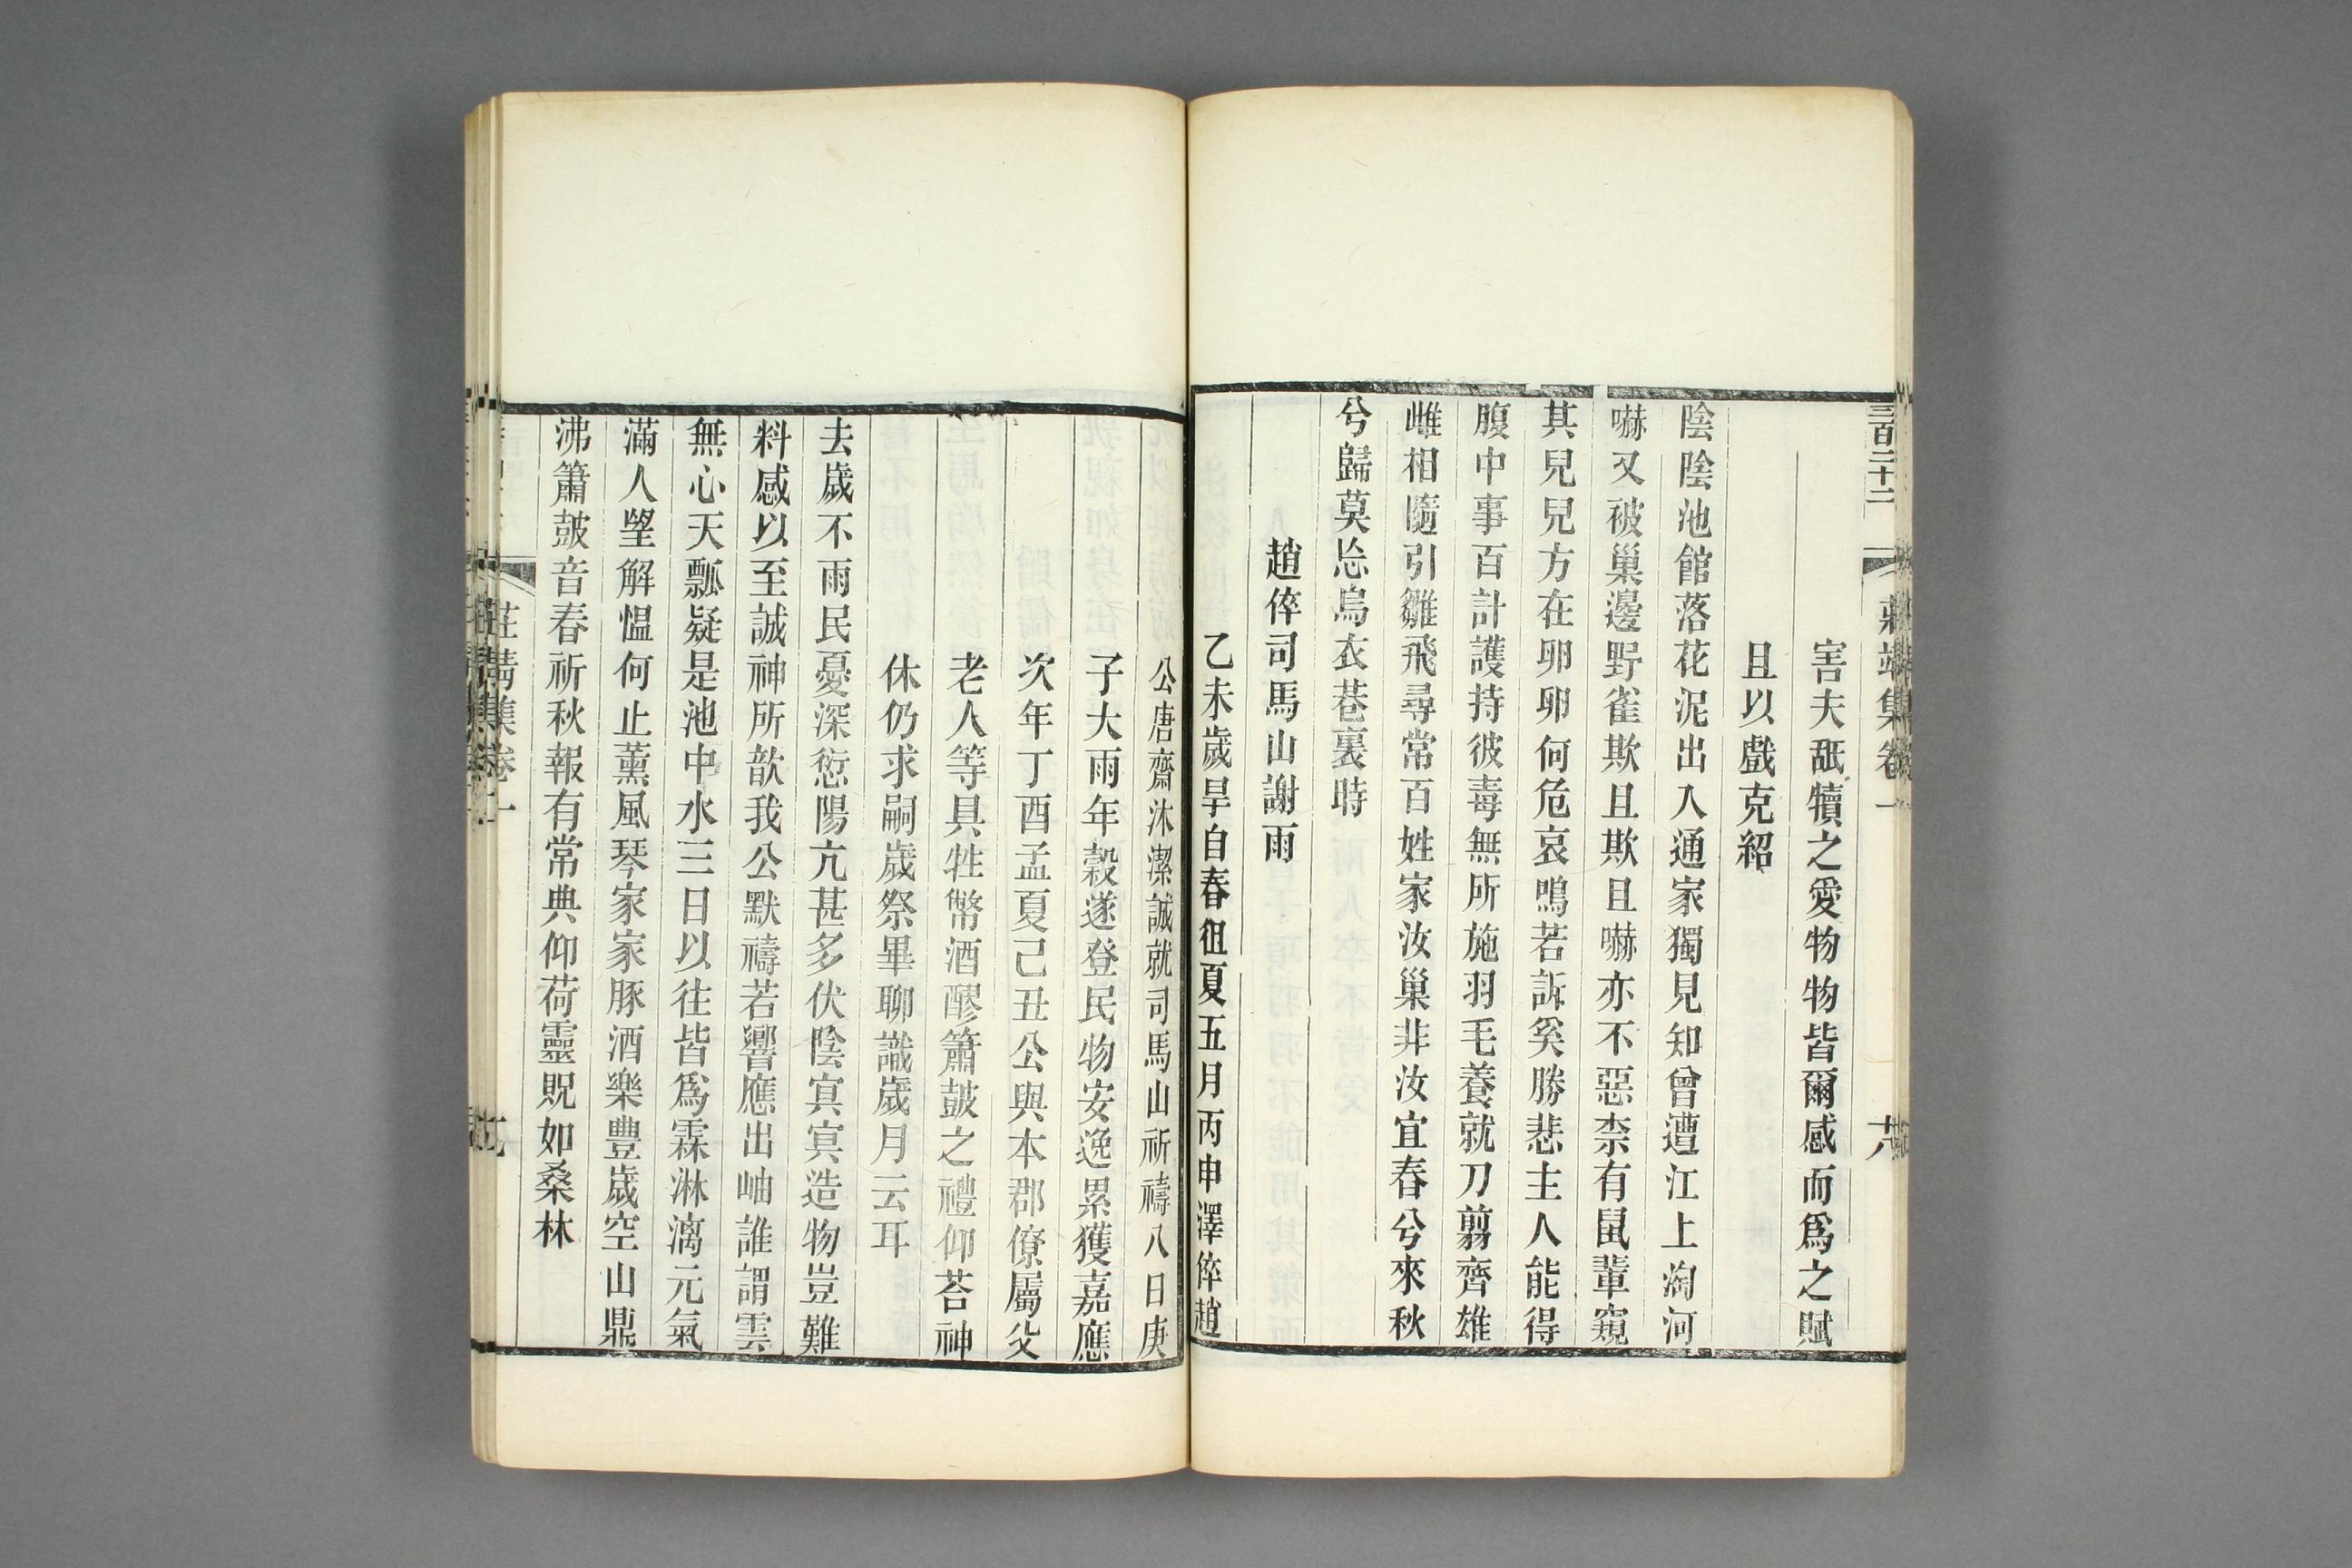 三百二十二
莊靖集卷一
十六
害夫舐犢之愛物物皆爾感而爲之賦
且以戲克紹
陰陰池館落花泥出入通家獨見知曾遭江上淘河
嚇又被巢邊野雀欺且欺且嚇亦不惡柰有鼠輩窺
其兒兒方在卵卵何危哀鳴若訴奚勝悲主人能得
腹中事百計護持彼毒無所施羽毛養就刀翦齊雄
雌相隨引雛飛尋常百姓家汝巢非汝宜春兮來秋
兮歸莫忘烏衣巷裏時
趙倅司馬山謝雨
乙未歲旱自春徂夏五月丙申澤倅趙
公唐齋沐潔誠就司馬山祈禱八日庚
子大雨年穀遂登民物安逸累獲嘉應
次年丁酉孟夏己丑公與本郡僚屬父
老人等具牲幣酒醪簫鼓之禮仰荅神
休仍求嗣歲祭畢聊識歲月云耳
去歲不雨民憂深愆陽亢甚多伏陰冥冥造物豈難
料感以至誠神所歆我公默禱若響應出岫誰謂雲
無心天瓢疑是池中水三日以往皆爲霖淋漓元氣
滿人望解慍何止薰風琴家家豚酒樂豐歲空山鼎
沸簫鼓音春祈秋報有常典仰荷靈貺如桑林
莊靖集卷一